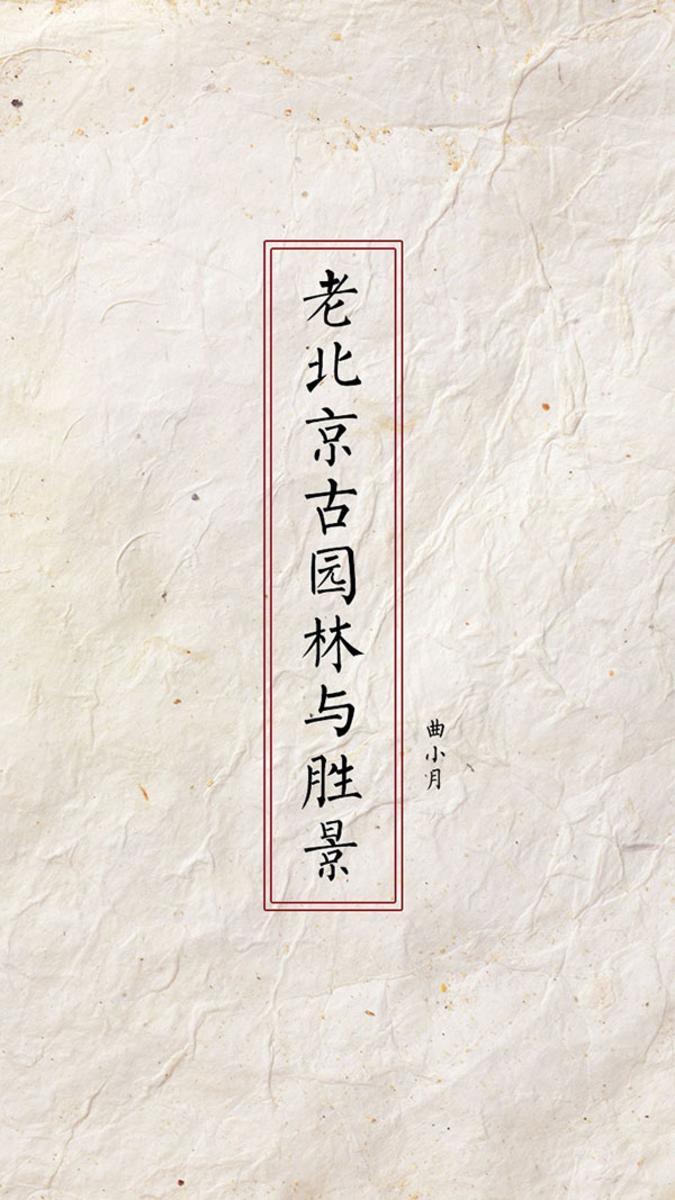 老北京古园林与胜景
曲小月